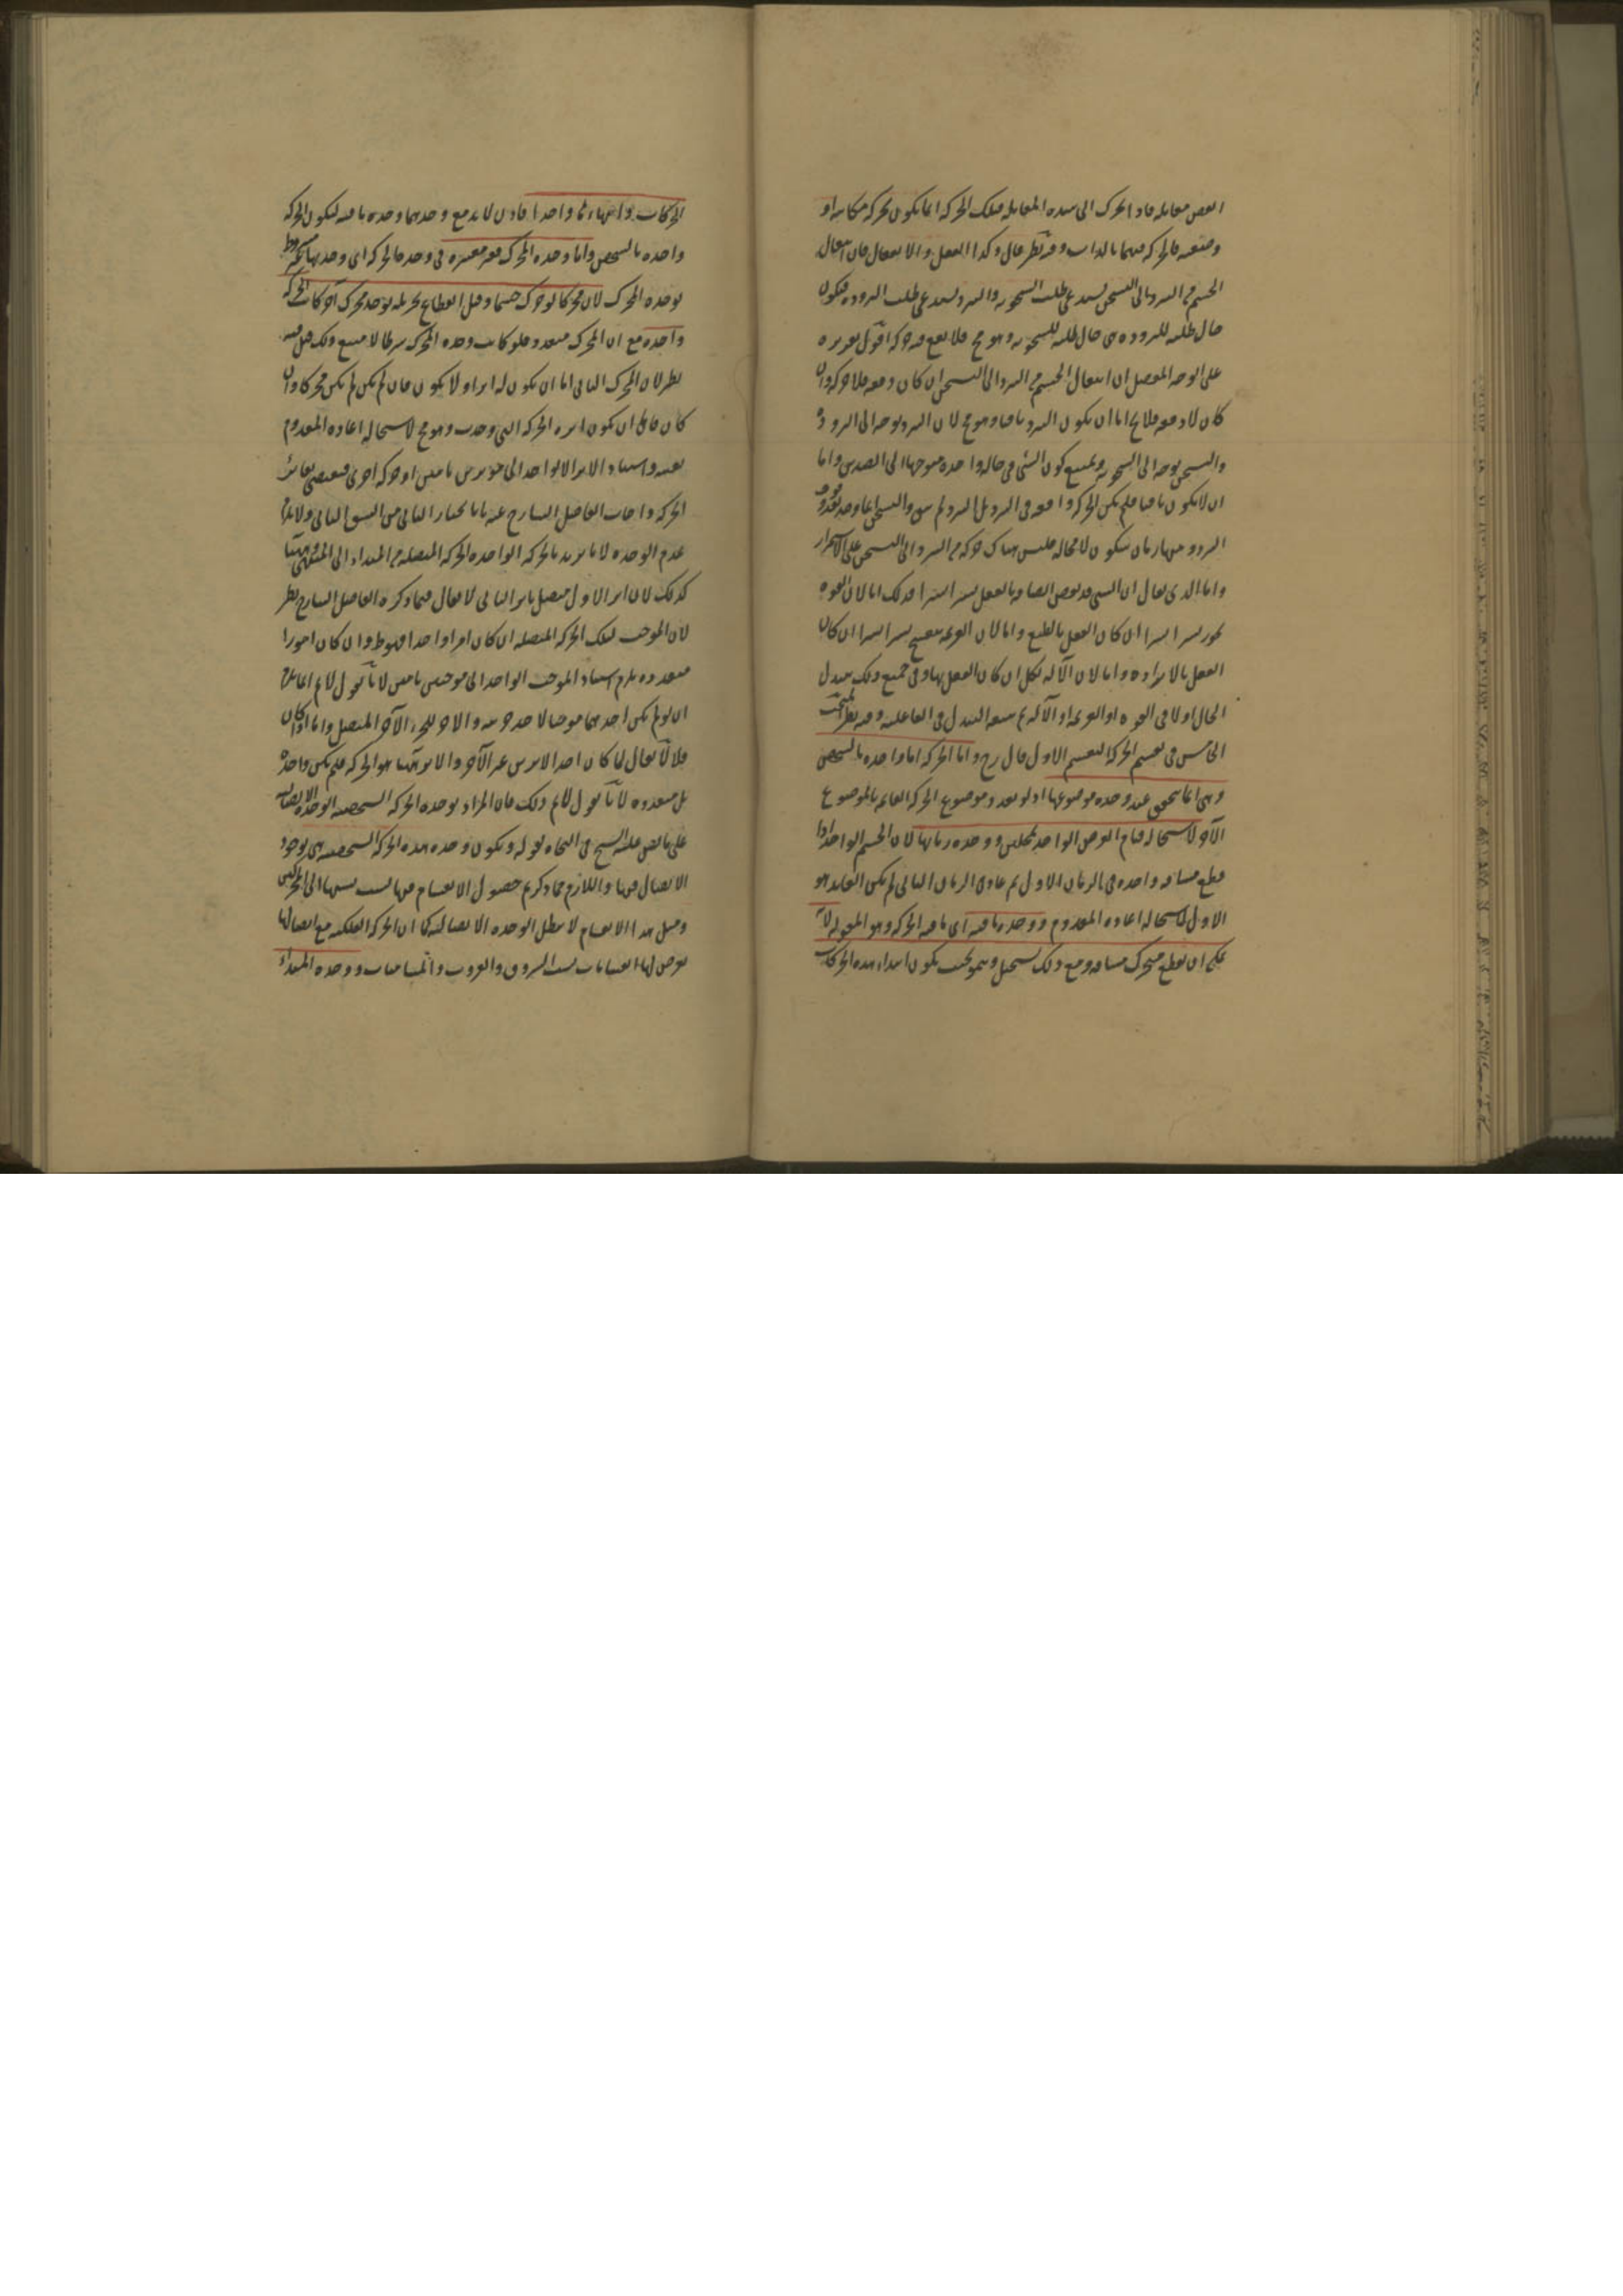 البعض مقابله فاذا تحرك الى هذه المقابلة فتلك الحركة انما يكون بحركة مكانية او
وضعية فالحركة فيهما بالذات وفيه نظر قال وكذا الفعل والانفعال فان انتقال
الجسم من التبرد الى التسخن يستدعى طلب السخونة والتبرد يستدعى طلب البرودة فيكون
حال طلبه للبرودة فى حال طلبه للسخونة وهو مح فلا يقع فيه حركة اقول تقريره
على الوجه المفصل ان انتقال الجسم من التبرد الى التسخن ان كان دفعه فلا حركة وان
كان لا دفعه فلا يخ اما ان يكون التبرد باقيا وهو مح لان التبرد توجه الى البرودة
والتسخن توجه الى السخونة ويمتنع كون الشئ فى حالة واحدة متوجها الى الضدين واما
ان لا يكون باقيا فلم يكن الحركة واقعه فى التبرد بل التبرد لم يبق والتسخن انما وجد بعد وقوف
التبرد وبينهما زمان سكون لا محالة فليس هناك حركة من التبرد الى التسخن على الاستمرار
واما الذى يقال ان الشئ قد ينقص اتصافه بالفعل يسيرا يسيرا فذلك اما لان القوة
تخور يسيرا يسيرا ان كان الفعل بالطبع واما لان العزيمة تنفسخ يسيرا يسيرا ان كان
الفعل بالارادة واما لان الآلة تكل ان كان الفعل بها وفى جميع ذلك يتبدل
الحال اولا فى القوة او العزيمة او الآلة ثم يتبعه التبدل فى الفاعلية وفيه نظر المبحث
الخامس فى تقسيم الحركة التقسيم الاول قال رح واما الحركة اما واحدة بالشخص
وهى انما يتحقق عند وحدة موضوعها اذ لو تعدد موضوع الحركة القائم بالموضوع
الآخر لاستحالة قيام العرض الواحد بمحلين ووحدة زمانها لان الجسم الواحد اذا
قطع مسافة واحدة فى الزمان الاول ثم عاد فى الزمان الثانى لم يكن العايد هو
الاول لاستحالة اعادة المعدوم ووحدة ما فيه اى ما فيه الحركة وهو المقولة لانه
يمكن ان يقطع متحرك مسافة ومع ذلك يستحيل وينمو بحيث يكون ابتداء هذه الحركات
الحركات وانتهاءها واحدا فاذن لا بد مع وحدتهما وحدة ما فيه ليكون الحركة
واحدة بالشخص واما وحدة المحرك فغير معتبرة فى وحدة الحركة اى وحدتها غير مشروط
بوحدة المحرك لان محركا لو حرك جسما وقبل انقطاع تحريكه يوجد محرك آخر كانت الحركة
واحدة مع ان المحرك متعدد فلو كانت وحدة المحرك شرطا لامتنع ذلك قيل فيه
نظر لان المحرك الثانى اما ان يكون له اثر او لا يكون فان لم يكن لم يكن محركا وان
كان فاما ان يكون اثره الحركة التى وجدت وهو مح لاستحالة اعادة المعدوم
بعينه واستناد الاثر الواحد الى مؤثرين تامين او حركة اخرى فيقتضى تغاير
الحركة واجاب الفاضل الشارح عنه بانا نختار الثانى من الشق الثانى ولا يلزم
عدم الوحدة لانا نريد بالحركة الواحدة الحركة المتصلة من المبداء الى المنتهى وههنا
كذلك لان اثر الاول متصل باثر الثانى لا يقال فيما ذكره الفاضل الشارح نظر
لان الموجب لتلك الحركة المتصلة ان كان امرا واحدا فهو ظ وان كان امورا
متعددة يلزم استناد الموجب الواحد الى موجبين تامين لانا نقول لا نم انما يلزم
ان لو لم يكن احدهما موجبا لاحد جزئيه والاخر للجزء الآخر المتصل واما اذا كان
فلا لا يقال لما كان احد الاثرين غير الآخر والاثر ههنا هو الحركة فلم يكن واحدة
بل متعددة لانا نقول لا نم ذلك فان المراد بوحدة الحركة الشخصية الوحدة الاتصالية
على ما نص عليه الشيخ فى النجاة بقوله ويكون وحدة هذه الحركة الشخصية هى بوجود
الاتصال فيها واللازم مما ذكرتم حصول الانقسام فيها بسبب نسبتها الى المحركين
ومثل هذا الانقسام لا يبطل الوحدة الاتصالية كما ان الحركة الفلكية مع اتصالها
يعرض لها انقسامات بسبب الشروق والغروب والمسامتات ووحدة المبداء